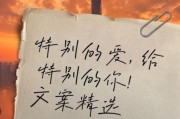 特别的爱，给
特别的你！
文案精选